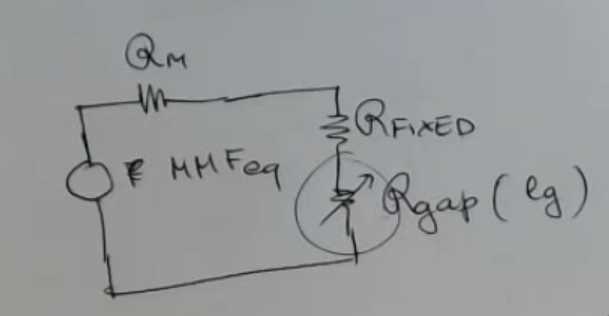 RM
RFIXED
MMFeq
Rgap (lg)